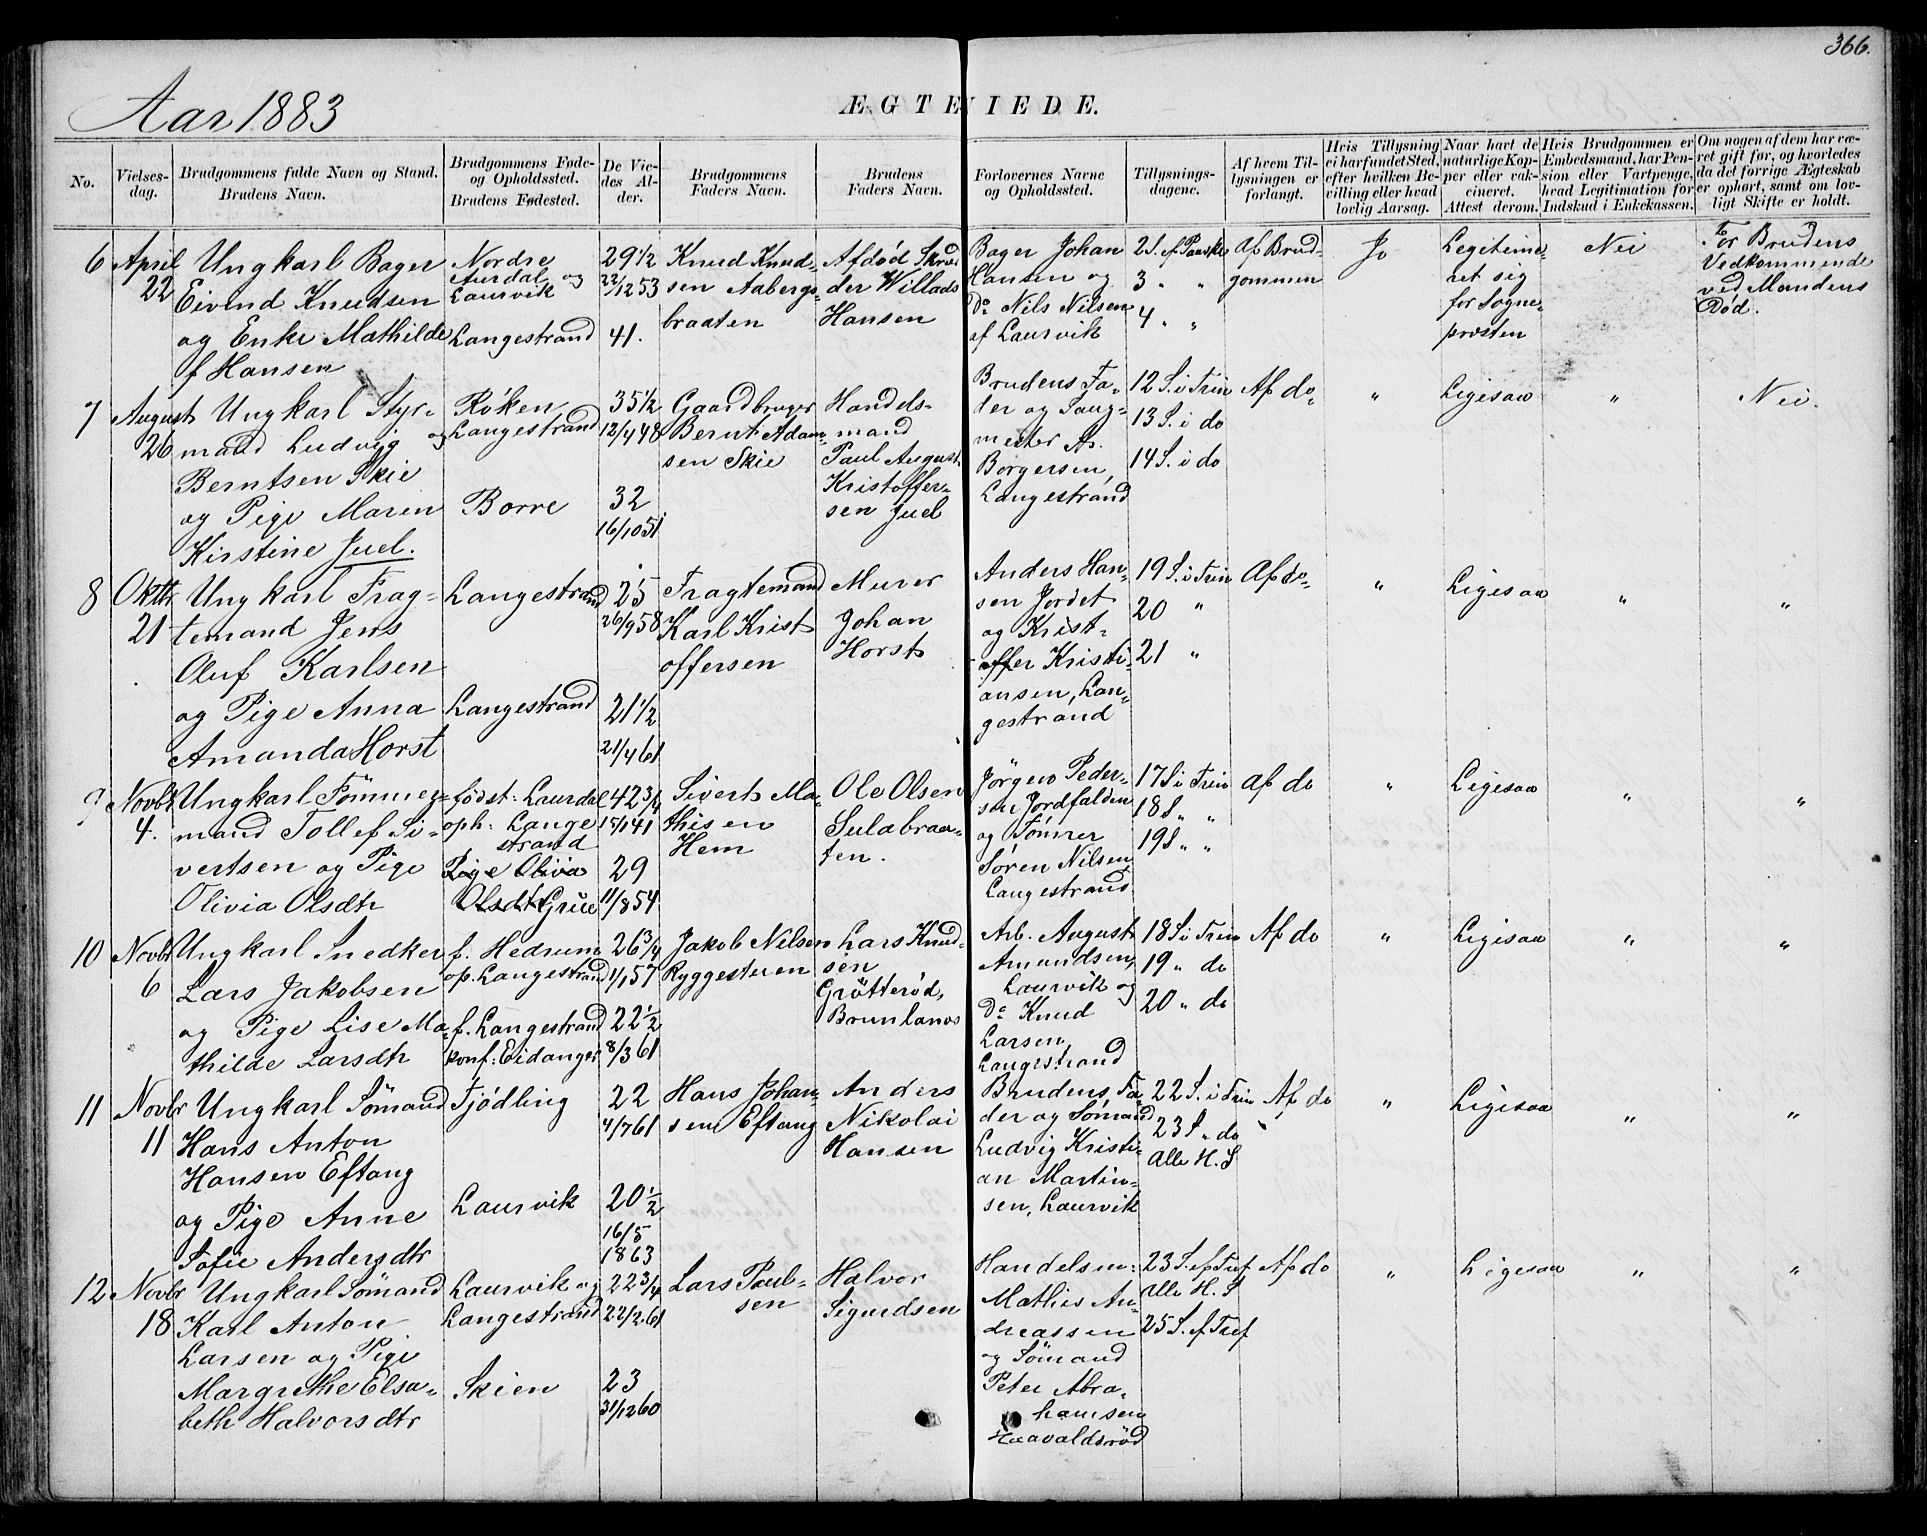 366.
Aar 1883
ÆGTEVIEDE.
No.
Vielses-
dag.
Brudgommens fulde Navn og Stand.
Brudens Navn.
Brudgommens Føde-
og Opholdssted.
Brudens Fødested.
De Vie-
des Al-
der.
Brudgommens
Faders Navn.
Brudens
Faders Navn.
Forlovernes Navne
og Opholdssted.
Tillysnings-
dagene.
Af hvem Til-
lysningen er
forlangt.
Hvis Tillysning
ei har fundet Sted,
efter hvilken Be-
villing eller hvad
lovlig Aarsag.
Naar havt de
naturlige Kop-
per eller vak-
cineret.
Attest derom.
Hvis Brudgommen er
Embedsmand, har Pen-
sion eller Vartpenge,
hvad Legitimation for
Indskud i Enkekassen.
Om nogen af dem har væ-
ret gift før, og hvorledes
da det forrige Ægteskab
er ophørt, samt om lov-
ligt Skifte er holdt.
6
April
22
Ungkarl Bager
Eivind Knudsen
og Enke Mathilde
f Hansen
Nordre
Aurdal og
Laurvik
Langestrand
29 1/2
22/12 53
41.
Knud Knud-
sen Aabergs-
braaten
Afdød Skræd
der Willads
Hansen
Bager Johan
Hansen og
Do Nils Nilsen
af Laurvik
2 S. ef Paaske
3 " "
4 " "
Af Brud-
gommen
Jo
Legitime-
ret sig
for Sogne-
præsten
Nei
For Brudens
Vedkommende
ved Mandens
Død.
7
August
26
Ungkarl Styr-
mand Ludvig
Berntsen Skie
og Pige Maren
Kirstine Juel.
Røken
og Langestrand
Borre
35 1/2
12/4 48
32
16/10 51
Gaardbruger
Bernt Adam-
sen Skie
Handels-
mand
Paul August
Kristoffer-
sen Juel
Brudens Fa-
der og Taug-
mester A.
Borgersen,
Langestrand
12 S. i Trin
13 S. i do
14 S. i do
Af do
"
Ligesaa
"
Nei.
8
Oktbr
21
Ungkarl Frag-
temand Jens
Oluf Karlsen
og Pige Anna
Amanda Horst
Langestrand
Langestrand
25
26/9 58
21 1/2
21/4 61
Fragtemand
Karl Krist
offersen
Murer
Johan
Horst
Anders Han-
sen Jordet
og Krist-
offer Kristi-
ansen, Lan-
gestrand
19 S. i Trin
20 "
21 "
Af do
"
Ligesaa
"
"
9
Novbr
4.
Ungkarl Tømmer-
mand Tollef Si-
vertsen og Pige
Olivia Olsdtr
født: Laurdal
oph: Lange
strand
Pige Olivia
Olsdtr Grue
42 3/4
15/1 41
29
11/8 54
Sivert Ma-
thisen
Hem
Ole Olsen
Sulabraa-
ten.
Jörgen Peder-
sen Jordfalden
og Tømrer
Søren Nilsen
Langestrand
17 S i Trin
18 S " "
19 S " "
Af do
"
Ligesaa
"
"
10
Novbr
6
Ungkarl Snedker
Lars Jakobsen
og Pige Lise Ma-
thilde Larsdtr
f. Hedrum
op. Langestrand
f. Langestrand
konf: Eidanger
26 3/4
1/1 57
22 1/2
8/3 61
Jakob Nilsen
Ryggesteren
Lars Knud-
sen
Grötteröd,
Brunlanæs
Arb. August
Amundsen,
Laurvik og
Do Knud
Larsen,
Langestrand
18 S i Trin
19 " do
20 " do
Af do
"
Ligesaa
"
"
11
Novbr
11
Ungkarl Sömand
Hans Anton
Hansen Eftang
og Pige Anne
Sofie Andersdtr
Tjødling
Laurvik
22
4/7 61
20 1/2
16/5
1863
Hans Johan-
sen Eftang
Anders
Nikolai
Hansen
Brudens Fa-
der og Sømand
Ludvig Kristi-
an Martin-
sen, Laurvik
22 S. i Trin
23 S " do
Alle H. S
Af do
"
Ligesaa
"
"
12
Novbr
18
Ungkarl Sömand
Karl Anton
Larsen og Pige
Margrethe Elsa-
beth Halvorsdtr
Laurvik og
Langestrand
Skien
22 3/4
22/2 61
23
31/12 60
Lars Paul-
sen
Halvor
Sigurdsen
Handelsm:
Mathis An-
dreassen
og Sömand
Peter Abra-
hamsen
Haavaldsrød
23 S. ef Tref
Alle H. S
25 S. ef Tref
Af do
"
Ligesaa
"
"